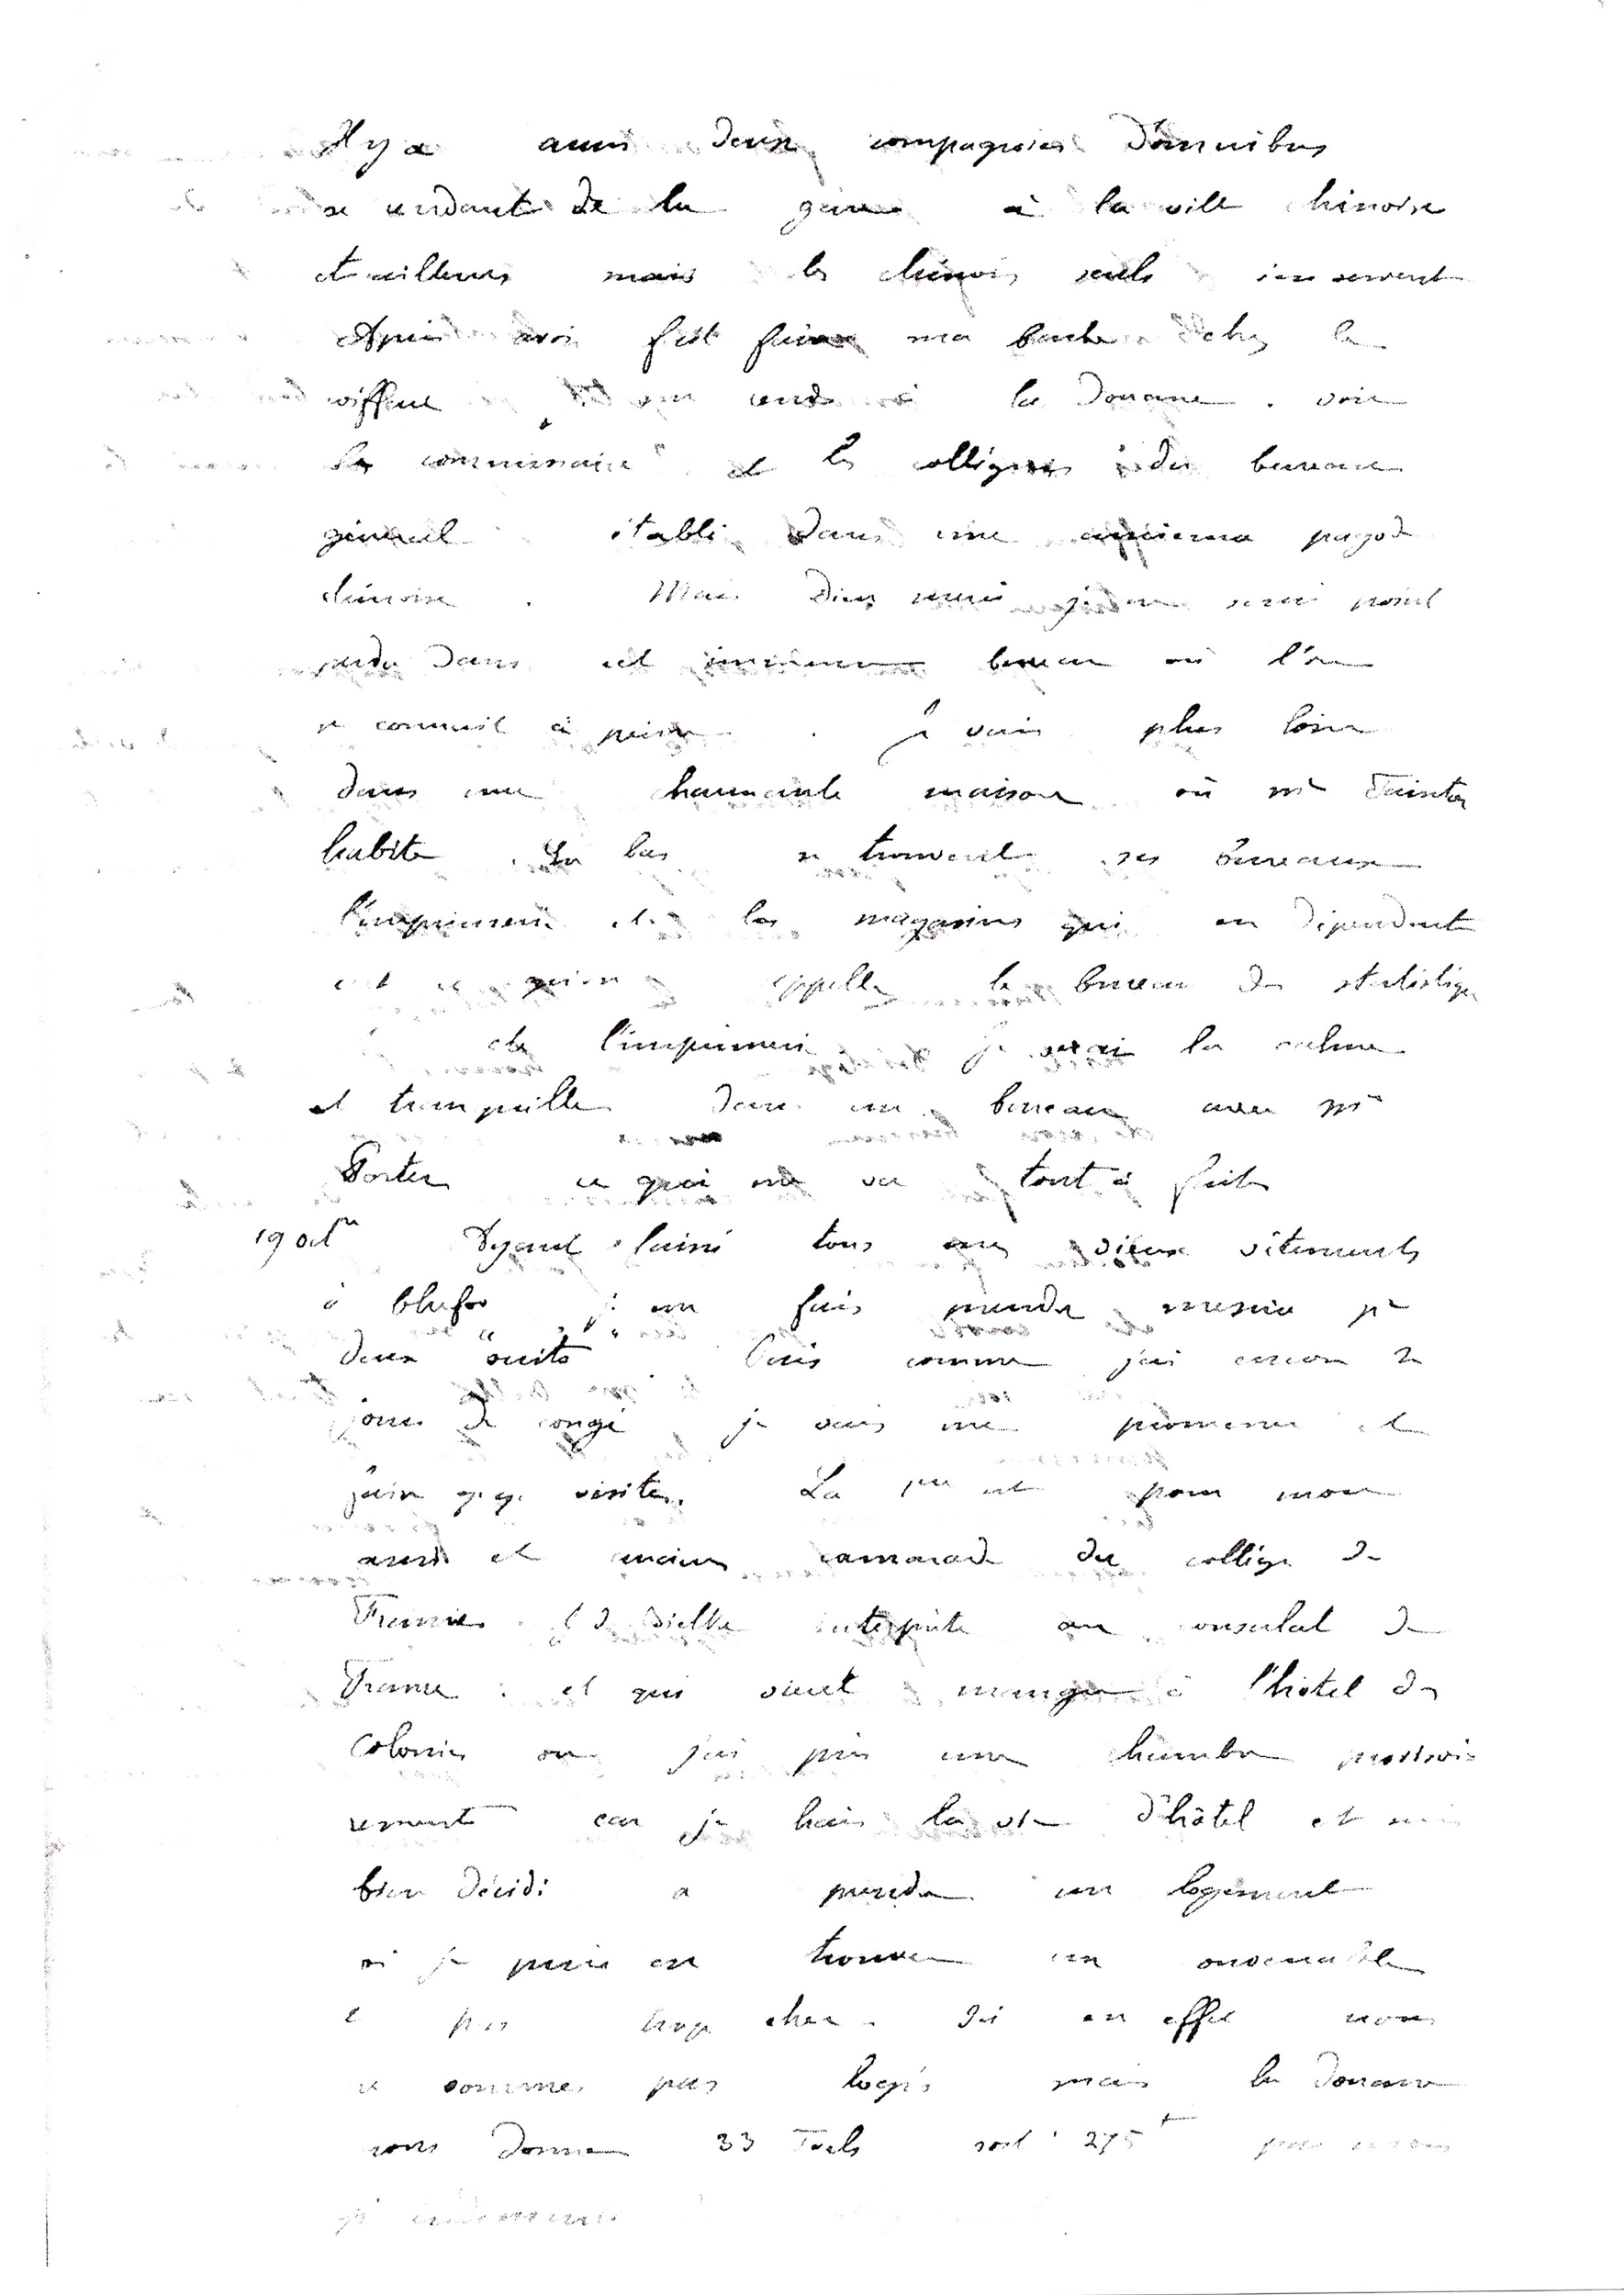 Il y a aussi deux compagnies d'omnibus
se rendant de la gare à la ville chinoise
et ailleurs mais les chinois seuls s'en servent
Après avoir fait faire ma barbe chez le
coiffeur je me rends à la Douane voir
le commissaire et les collègues du bureau
général établi dans une ancienne pagode
chinoise. Mais Dieu merci je ne serai point
perdu dans cet immense bureau où l'on
se connait à peine. je vais plus loin
dans une charmante maison où Mr Taintor
habite. En bas se trouvent ses bureaux
l'imprimerie et les magasins qui en dépendent
c'est ce qu'on appelle le bureau de statistique
et de l'imprimerie je serai là calme
et tranquille dans un bureau avec Mr
Porter ce qui me va tout à fait
19 oct Ayant laissé tous mes vieux vêtements
à Chefoo je me fais prendre mesure pr
deux "suits" Puis comme j'ai encore 2
jours de congé je vais me promener et
faire qq. visites. La 1ère est pour mon
ami et ancien camarade du collège de
France interprète au consulat de
France. et qui vient manger à l'hôtel des
Colonies ou j'ai pris une chambre provisoi-
rement car je hais la vie d'hôtel et suis
bien décidé a prendre un logement
si je puis en trouver un convenable
et pas trop cher. Ici en effet nous
ne sommes pas logés mais la Douane
nous donne 33 Taels soit 275 f